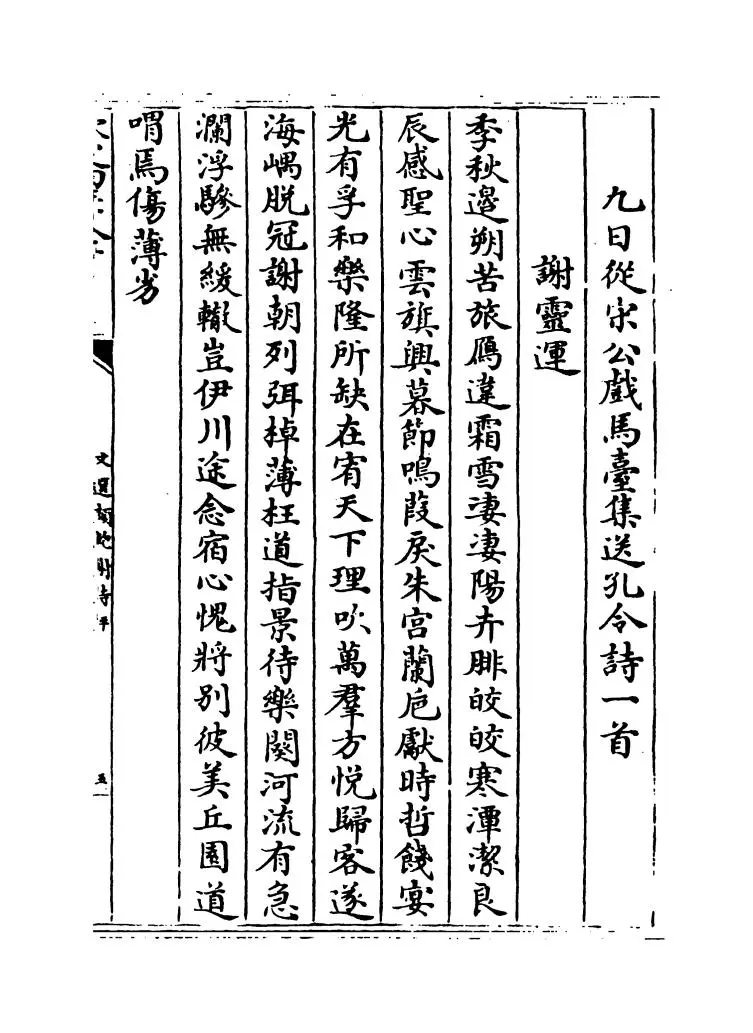 九日從宋公戲馬臺集送孔令詩一首
謝靈運
季秋邊朔苦旅鴈違霜雪凄凄陽卉腓皎皎寒潭潔良
辰感聖心雲旗興暮節鳴葭戾朱宮蘭巵獻時哲餞宴
光有孚和樂隆所缺在宥天下理吹萬羣方悅歸客遂
海嵎脫冠謝朝列弭棹薄枉道指景待樂闋河流有急
瀾浮驂無緩轍豈伊川途念宿心愧將別彼美丘園道
喟焉傷薄劣
文選顔鮑謝詩評
五